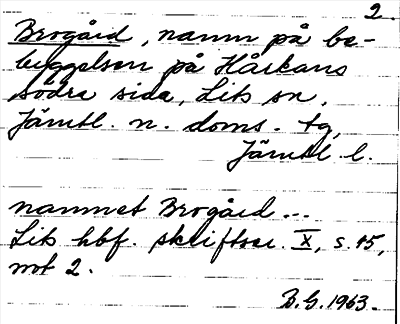 2.
Brogård, namn på be-
byggelsen på Hårkans
södra sida, Lits sn,
Jämtl. n. doms. tg,
Jämtl. l.
namnet Brogård...
Lits hbf. skriftser. X, s. 15,
not 2.
B.G. 1963.